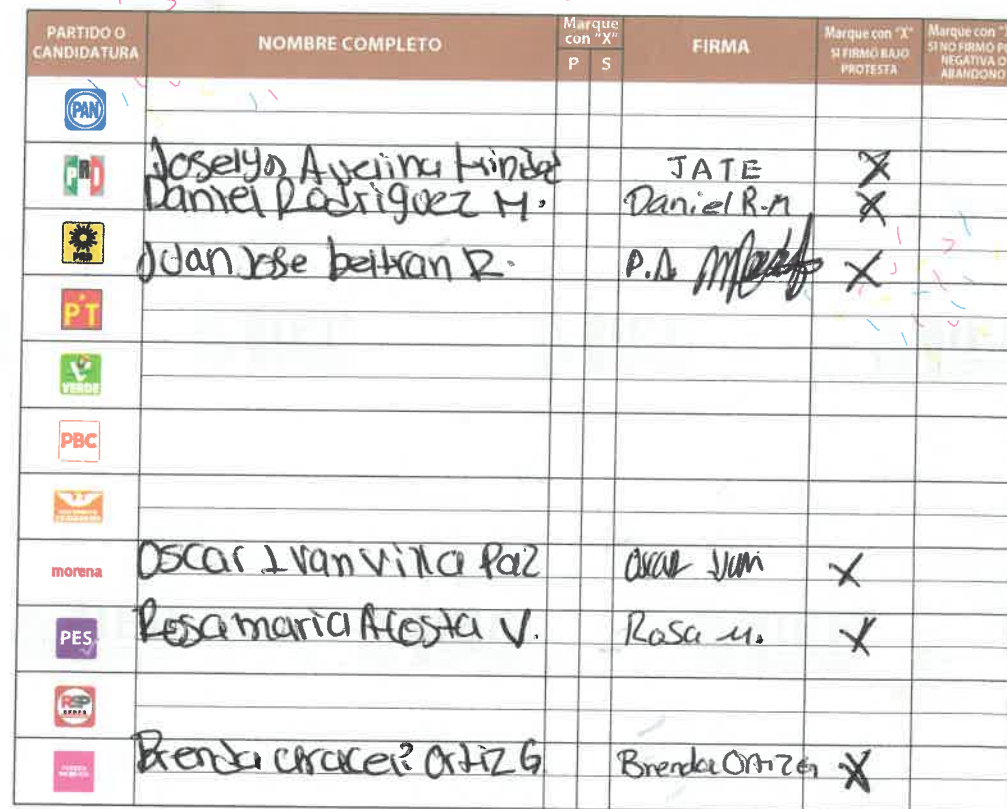 PARTIDO O CANDIDATURA
NOMBRE COMPLETO
Marque con "X"
P S
FIRMA
Marque con "X" SI FIRMÓ BAJO PROTESTA
Marque con "X SI NO FIRMÓ PO NEGATIVA O ABANDONO
PAN
PRI Joselyn Avelina JATE X
Daniel Rodriguez M. Daniel R.M X
PRD
Juan Jose beltran R. P.A. X
PT
VERDE
PBC
morena Oscar Ivan Villa Paz Oscar Ivan X
PES Rosa maria Acosta V. Rosa M. X
RSP
Brenda Ortiz G Brenda Ortiz G X